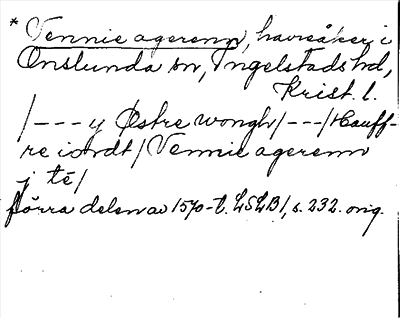 * Vennie agerenn, havreåker, i
Onslunda sn, Ingelstads hd,
Krist. l.
/---y Østre wongh/---/Hauff-
re iordt/Vennie agerenn
j té/
förra delen av 1570-t. LSLB1, s. 232. orig.